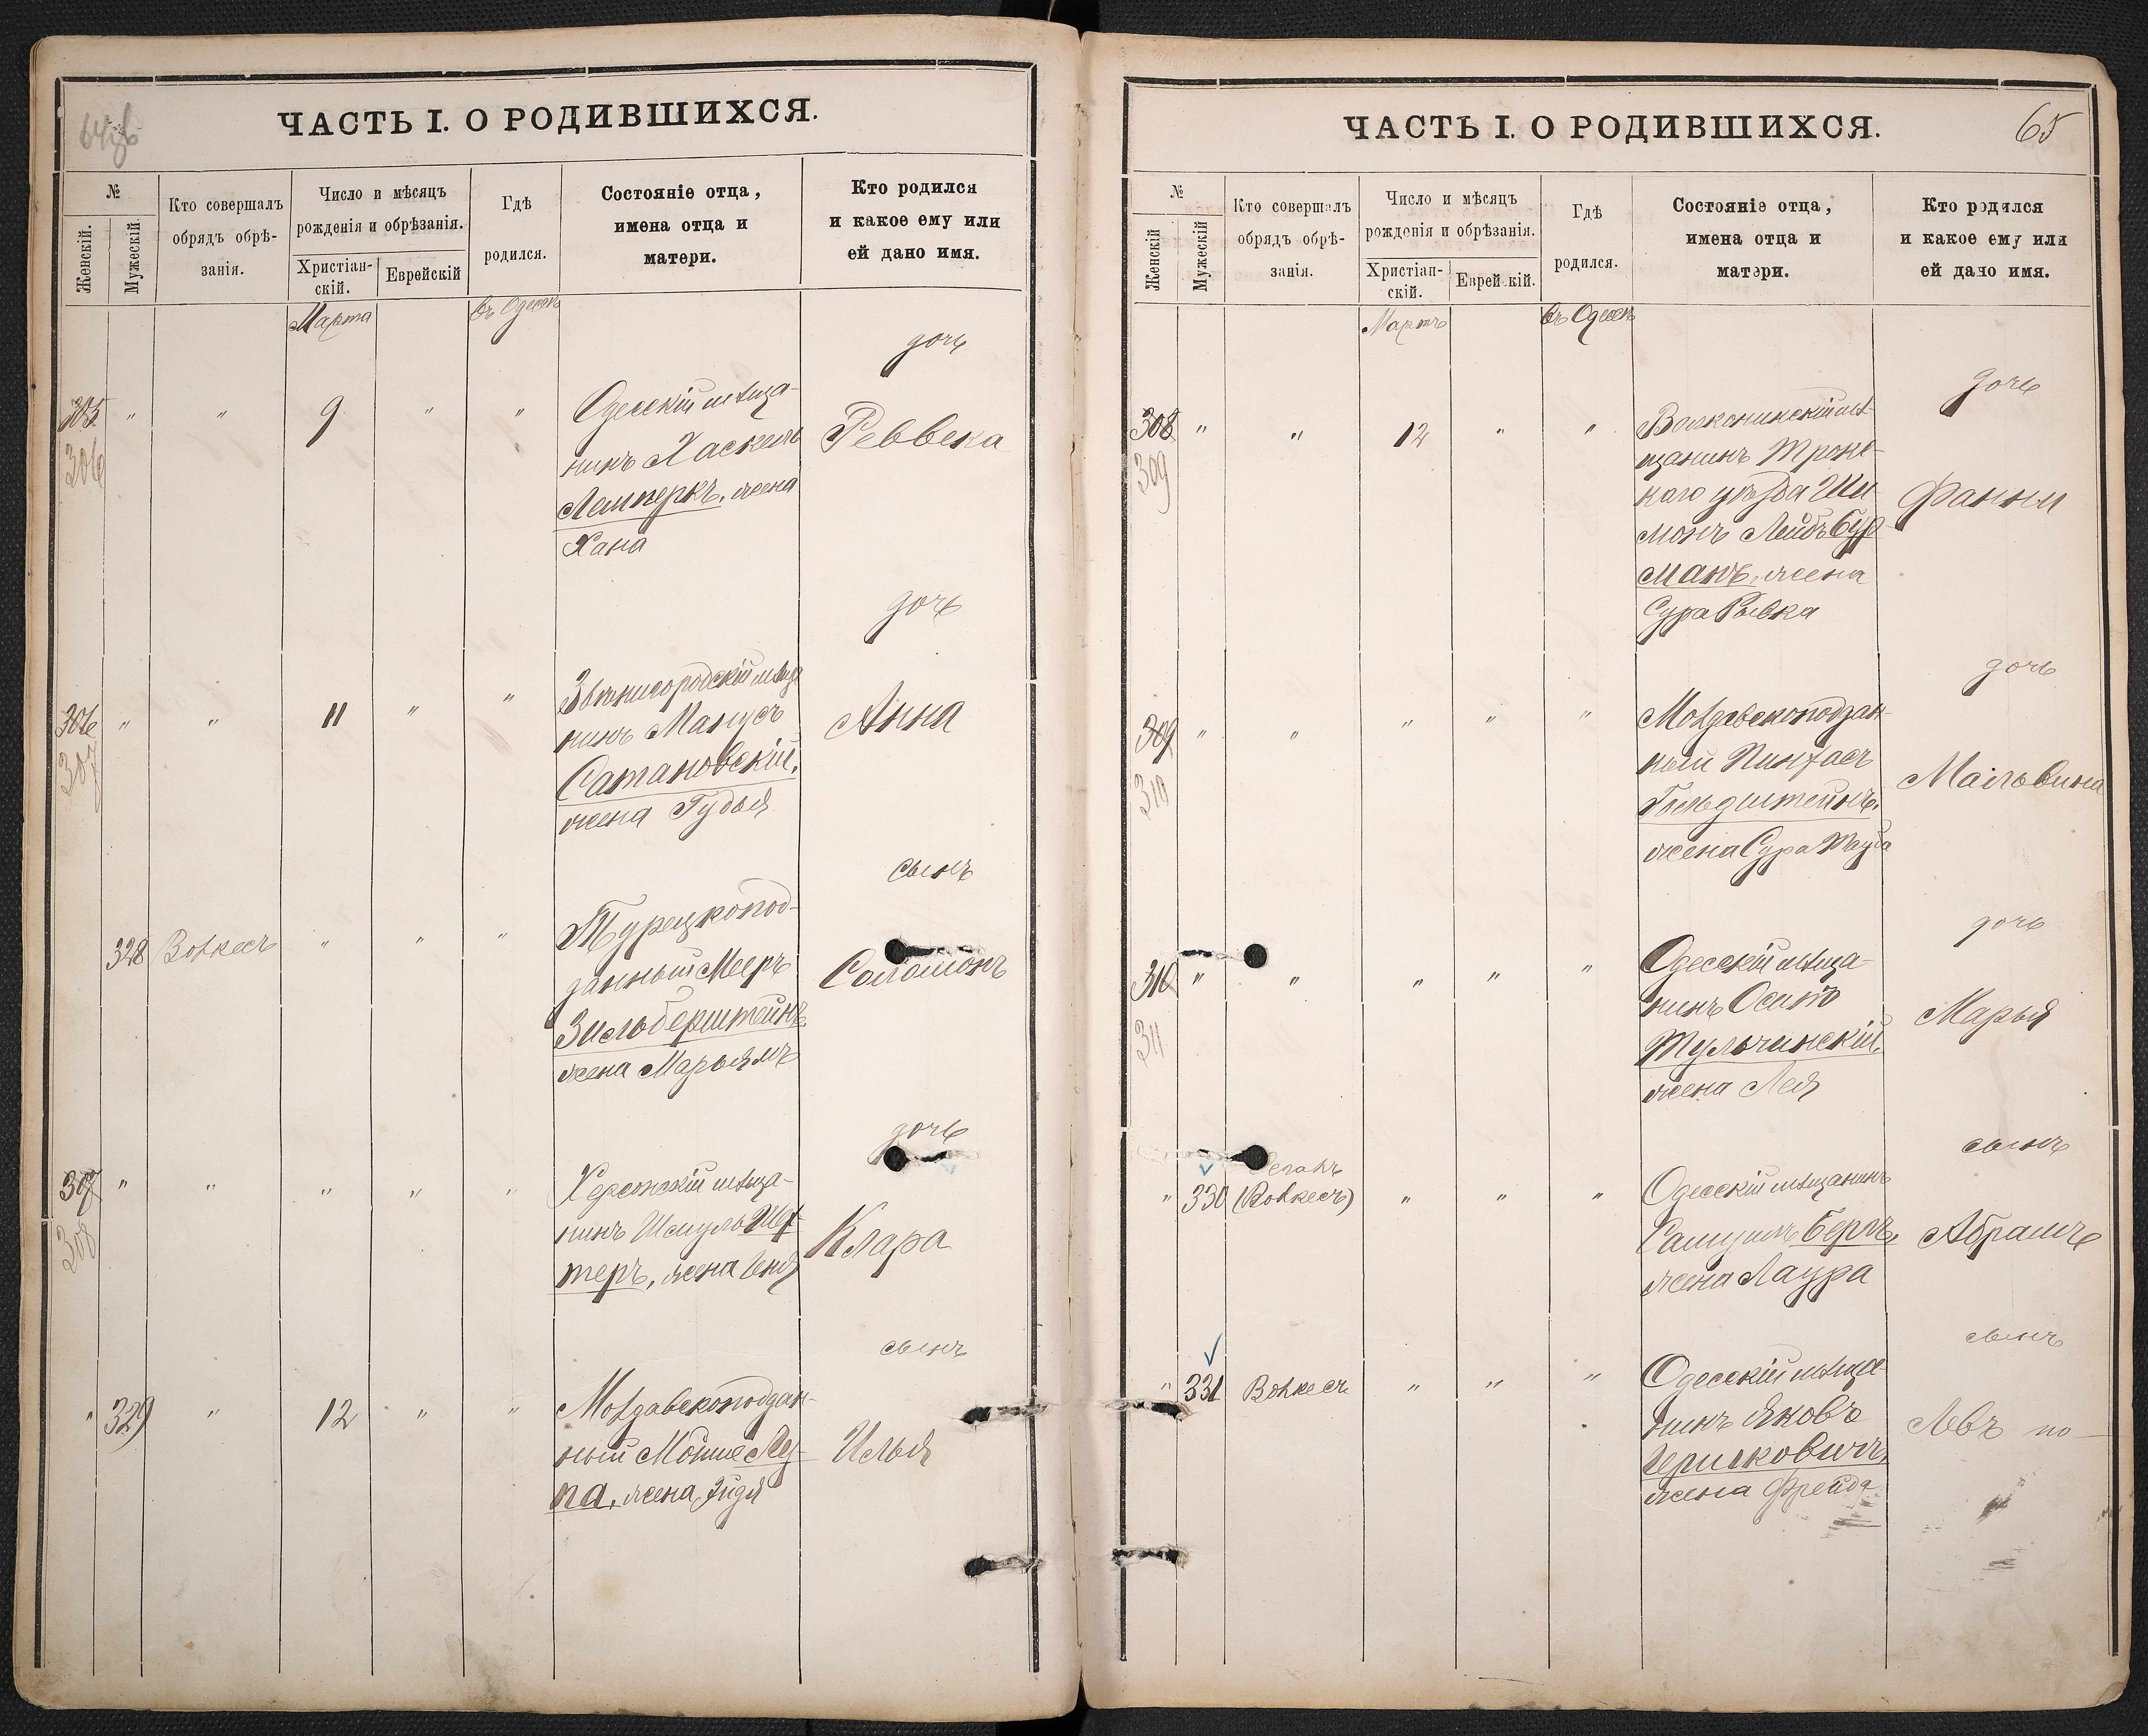 64 об
ЧАСТЬ I. О РОДИВШИХСЯ.
№
Женскій.
Мужескій
Кто совершалъ
обрядъ обрѣ-
занія.
Число и мѣсяцъ
рожденія и обрѣзанія.
Христіан-
скій.
Еврейскій
Гдѣ
родился.
Состояніе отца,
имена отца и
матери.
Кто родился
и какое ему или
ей дано имя.
Марта
въ Одессѣ
дочь
305 " " 9 " "
306
Одесскій мѣща-
нинъ Хаскель
Лемперкъ, жена
Хана
Реввека
дочь
306 " " 11 " "
307
Звенигородскій мѣща
нинъ Манусъ
Сатановскій,
жена Гудья
Анна
сынъ
328 Волкесъ " " "
Турецкопод-
данный Мееръ
Зильберштейнъ,
жена Марьямъ
Соломонъ
дочь
307 " " " " "
308
Херсонскій мѣща-
нинъ Шмуль
теръ, жена
Клара
сынъ
" 329 " 12 " "
Молдавскоподдан-
ный Мойше Лу-
па, жена Зидя
Илья
ЧАСТЬ I. О РОДИВШИХСЯ.
65
№
Женскій
Мужескій
Кто совершалъ
обрядъ обрѣ-
занія.
Число и мѣсяцъ
рожденія и обрѣзанія.
Христіан-
скій.
Еврей кій.
Гдѣ
родился.
Состояніе отца,
имена отца и
матери.
Кто родился
и какое ему или
ей дано имя.
Мартъ
въ Одессѣ
дочь
308 " " 12 " "
309
мѣ-
щанинъ Трокс-
каго уѣзда Ши
монъ Лейбъ Бур
манъ, жена
Сура Рывка
Фанни
дочь
309 " " " " "
310
Молдавскоподдан-
ный Пинхасъ
Гольдштейнъ,
жена Сура Тауба
Мальвина
дочь
310 " " " " "
311
Одесскій мѣща-
нинъ Осипъ
Тульчинскій,
жена Лея
Марья
сынъ
" 330 (Волкесъ) " " "
Одесскій мѣщанинъ
Самуилъ Беръ,
жена Лаура
Абрамъ
сынъ
" 331 Волкесъ " " "
Одесскій мѣща
нинъ Яковъ
Гершковичъ,
жена Фрейда
Левъ по-